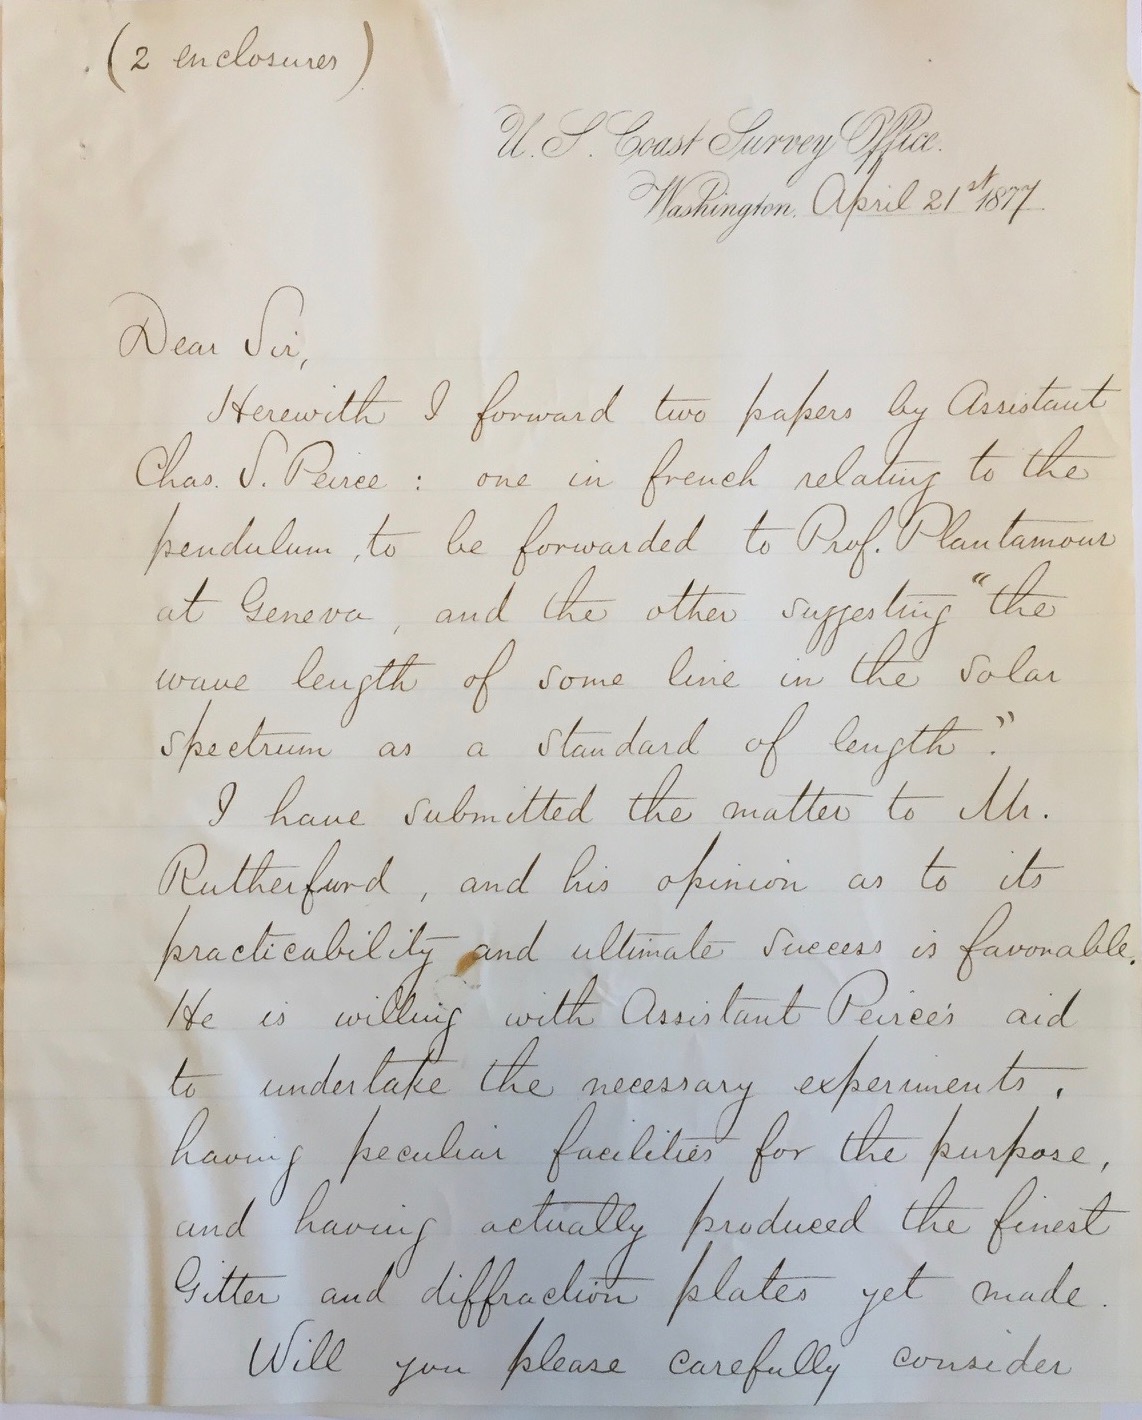 (2 enclosures)
U. S. Coast Survey Office.
Washington, April 21st 1877
Dear Sir,
Herewith I forward two papers by Assistant
Chas. S. Peirce : one in french relating to the
pendulum, to be forwarded to Prof. Plantamour
at Geneva, and the other suggesting "the
wave length of some line in the solar
spectrum as a standard of length".
I have submitted the matter to Mr.
Rutherfurd, and his opinion as to its
practicability and ultimate success is favorable.
He is willing with Assistant Peirce's aid
to undertake the necessary experiments,
having peculiar facilities for the purpose,
and having actually produced the finest
Gitter and diffraction plates yet made.
Will you please carefully consider